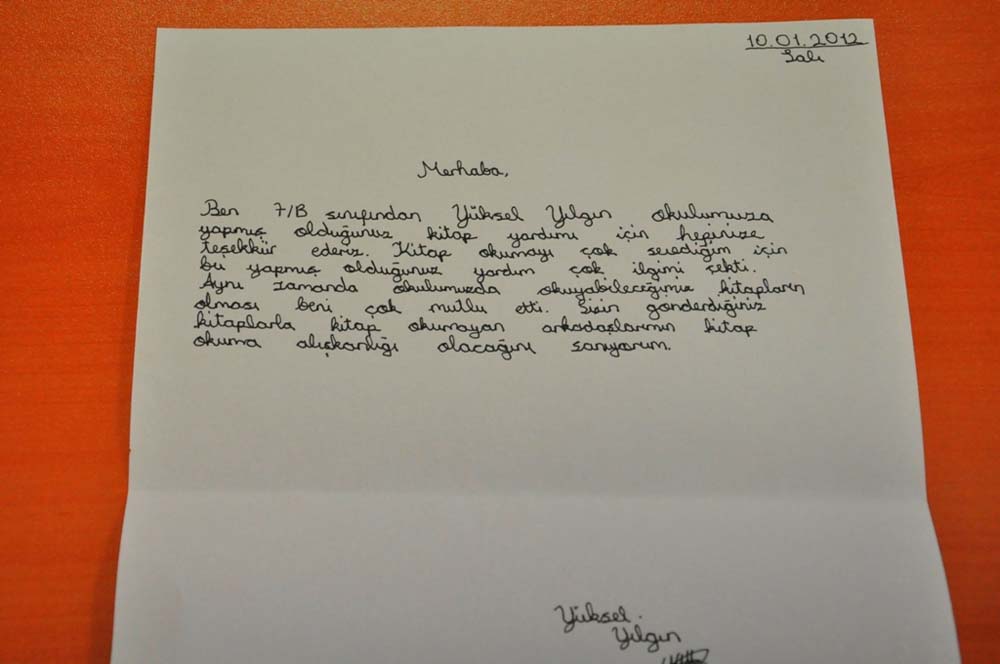 10.01.2012
Salı
Merhaba,
Ben 7/B sınıfından Yüksel Yılgın okulumuza
yapmış olduğunuz kitap yardımı için hepinize
teşekkür ederiz. Kitap okumayı çok sevdiğim için
bu yapmış olduğunuz yardım çok ilgimi çekti.
Aynı zamanda okulumuzda okuyabileceğimiz kitapların
olması beni çok mutlu etti. Sizin gönderdiğiniz
kitaplarla kitap okumayan arkadaşlarımın kitap
okuma alışkanlığı olacağını sanıyorum.
Yüksel
Yılgın